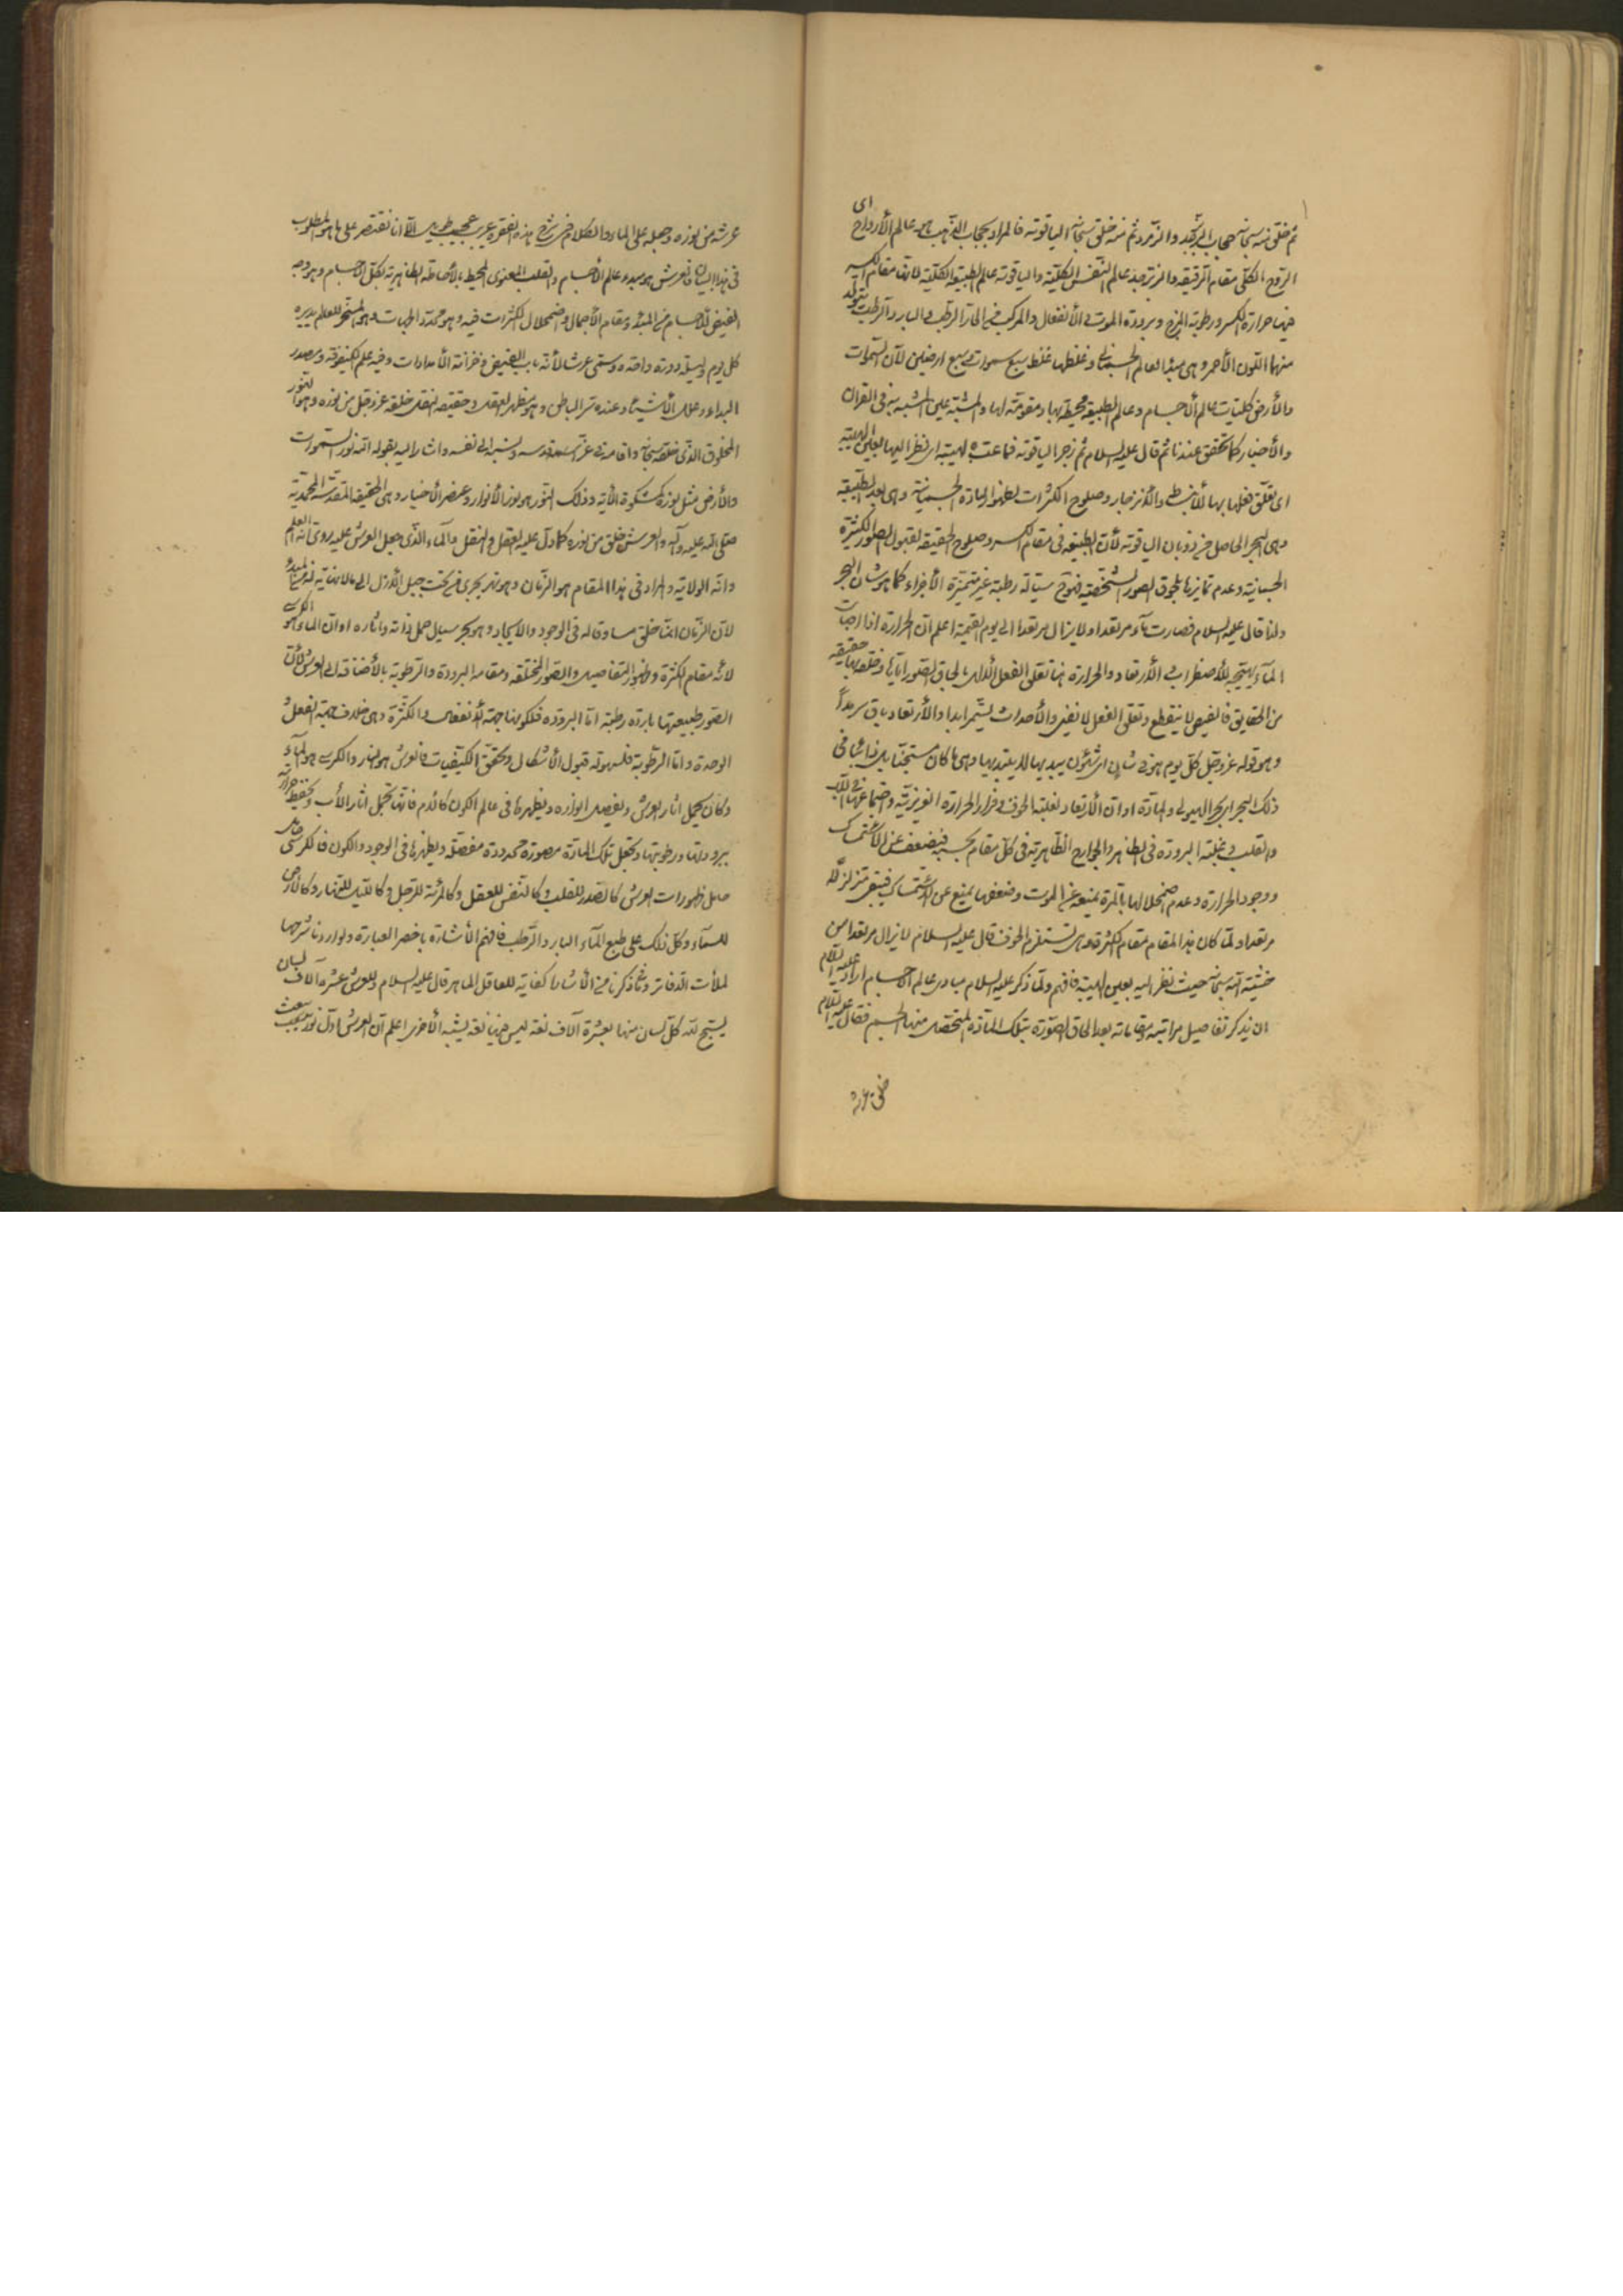 ثم خلق منه سبحانه حجاب الزبرجد والزمرد ثم منه خلق سبحانه الياقوتة فالمراد بحجاب الذهب هو عالم الأرواح اى
الروح الكلى مقام الرقيقة والزبرجد عالم النفس الكلية والياقوتة عالم الطبيعة الكلية لانها مقام الكسر
فيها حرارة الكسر ورطوبة المزج وبرودة الموت فى الأنفعال والمركب من الحار الرطب والبارد الرطب يتولد
منهما اللون الأحمر وهى مبدأ العالم الجسمانى وغلظها غلظ سبع سموات وسبع ارضين لأن السموات
والأرض كليات عالم الأجسام وعالم الطبيعة محيطة بها ومقومة لها والمشبه عين المشبه به فى القرآن
والأخبار كما تحقق عندنا ثم قال عليه السلام ثم زجر الياقوتة فماعت لهيبته اى نظر اليها بعين الهيبة
اى تعلق فعلها بها للأنبساط والأنزجار وصلوح الكثرات لظهور المادة الجسمانية وهى بعد الطبيعة
وهى البحر الحاصل من ذوبان الياقوتة لأن الطبيعة فى مقام الكسر وصلوح الحقيقة لقبول الصور الكثيرة
الجسمانية وعدم تمايزها بلحوق الصور الشخصية فتموج سيالة رطبة غير متميزة الأجزاء كما هو شان البحر
ولذا قال عليه السلام فصارت ماء مرتعدا ولا يزال مرتعدا الى يوم القيمة اعلم ان الحرارة اذا اصابت
الماء يهتيج للأضطراب والأرتعاد والحرارة هنا تعلق الفعل الألهى بالحاق الصور اياها وخلقه بها حقيقة
من الحقايق فالفيض لا ينقطع وتعلق الفعل لا يفنى والأحداث يستمر ابدا والأرتعاد باق سرمداً
وهو قوله عز وجل كل يوم هو فى شان اى شئون يبديها لا يبتديها وهى ما كان مستجنا
ذلك البحر اى بحر الهيولى والمادة او ان الأرتعاد لغلبة الخوف وفرار الحرارة الغريزية واجتماعها فى اللب
والقلب وغلبة البرودة فى الظاهر والجوارح الظاهرية فى كل مقام بحسبه فيضعف عن الأستمساك
ووجود الحرارة وعدم اضمحلالها بالمرة يمنعه عن الموت وضعفها يمنع عن الأستمساك فيبقى متزلزلا
مرتعدا ولما كان هذا المقام مقام الكثرة وهى تستلزم الخوف قال عليه السلام لا يزال مرتعدا من
خشية الله سبحانه حيث نظر اليه بعين الهيبة فافهم ولما ذكر عليه السلام مبادى عالم الاجسام اراد عليه السلام
ان يذكر تفاصيل مراتبه ومقاماته بعد الحاق الصورة بتلك المادة المتحصل منهما الجسم فقال عليه السلام
خلق عرشه
عرشه من نوره وجعله على الماء والكلام فى شرح هذه الفقرة غريب عجيب طويل الا انا نقتصر على ما هو المطلوب
فى هذا البيان فالعرش هو مبدء عالم الأجسام والقلب المعنوى المحيط بالأحاطة الظاهرية بكل الاجسام وهو وجه
الفيض للاجسام من المبدء ومقام الأجمال واضمحلال الكثرات فيه وهو محدد الجهات وهو المسخر للعالم يديره
كل يوم وليلة دورة واحدة وسمى عرشا لأنه باب الفيض وخزانة الأمدادات وفيه علم الكيفوفة ومصدر
البداء وعلل الأشياء وعنده سر الباطن وهو مظهر العقل وحقيقة العقل خلقه عز وجل من نوره وهو النور
المخلوق الذى خلقه سبحانه واقامه فى عزته وقدسه ونسبه الى نفسه واشار اليه بقوله الله نور السموات
والأرض مثل نوره كمشكوة الأية وذلك النور هو نور الأنوار وعنصر الأخيار وهى الحقيقة المقدسة المحمدية
صلى الله عليه وآله والعرش خلق من نوره كما دل عليه العقل والنقل والماء الذى جعل العرش عليه روى انه العلم
وانه الولاية والمراد فى هذا المقام هو الزمان وهو نهر يجرى من تحت جبل الأزل الى ما لا نهاية له
لأن الزمان انما خلق مساوقا له فى الوجود والايجاد وهو بحر سيال حمل ذاته واثاره او ان الماء هو الكرسى
لأنه مقام الكثرة وظهور التفاصيل والصور المختلفة ومقام البرودة والرطوبة بالأضافة الى العرش لأن
الصور طبيعتها باردة رطبة اما البرودة فلكونها جهة الأنفعال والكثرة وهى خلاف جهة الفعل
الوحدة واما الرطوبة فلسهولة قبول الأشكال وتحقق الكيفيات فالعرش هو النار والكرسى هو الماء
وكان يحمل اثار العرش وتفصيل انواره ويظهرها فى عالم الكون كالأم فانها تحمل اثار الأب وتحفظ حرارته
ببرودتها ورطوبتها وتجعل تلك المادة مصورة محدودة مفصلة ويظهرها فى الوجود والكون فالكرسى حامل
ظهورات العرش كالصدر للقلب وكالنفس للعقل وكالمرئة للرجل وكالليل للنهار وكالأرض
للسماء وكل ذلك على طبع الماء البارد الرطب فافهم الأشارة باخصر العبارة ولو اردنا شرحها
لملأت الدفاتر وما ذكرنا من الأشارة كفاية للعاقل الماهر قال عليه السلام وللعرش عشرة آلاف لسان
يسبح الله كل لسان منها بعشرة آلاف لغة ليس فيها لغة يشبه الأخرى اعلم ان العرش اول نور